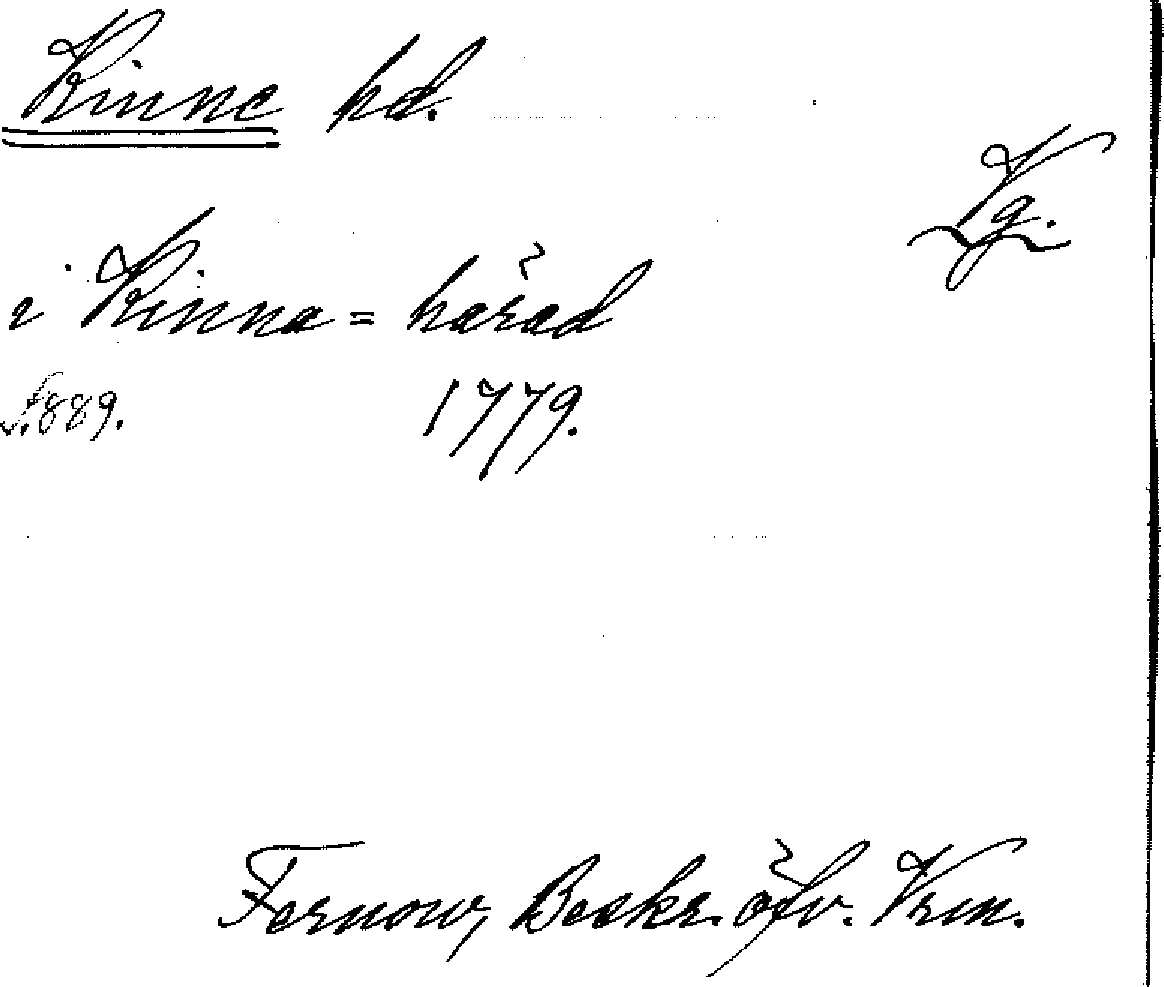 Kinne hd.
Vg.
i Kinna=härad
S. 889. 1779.
Fernow, Beskr. öfv. Vrm.